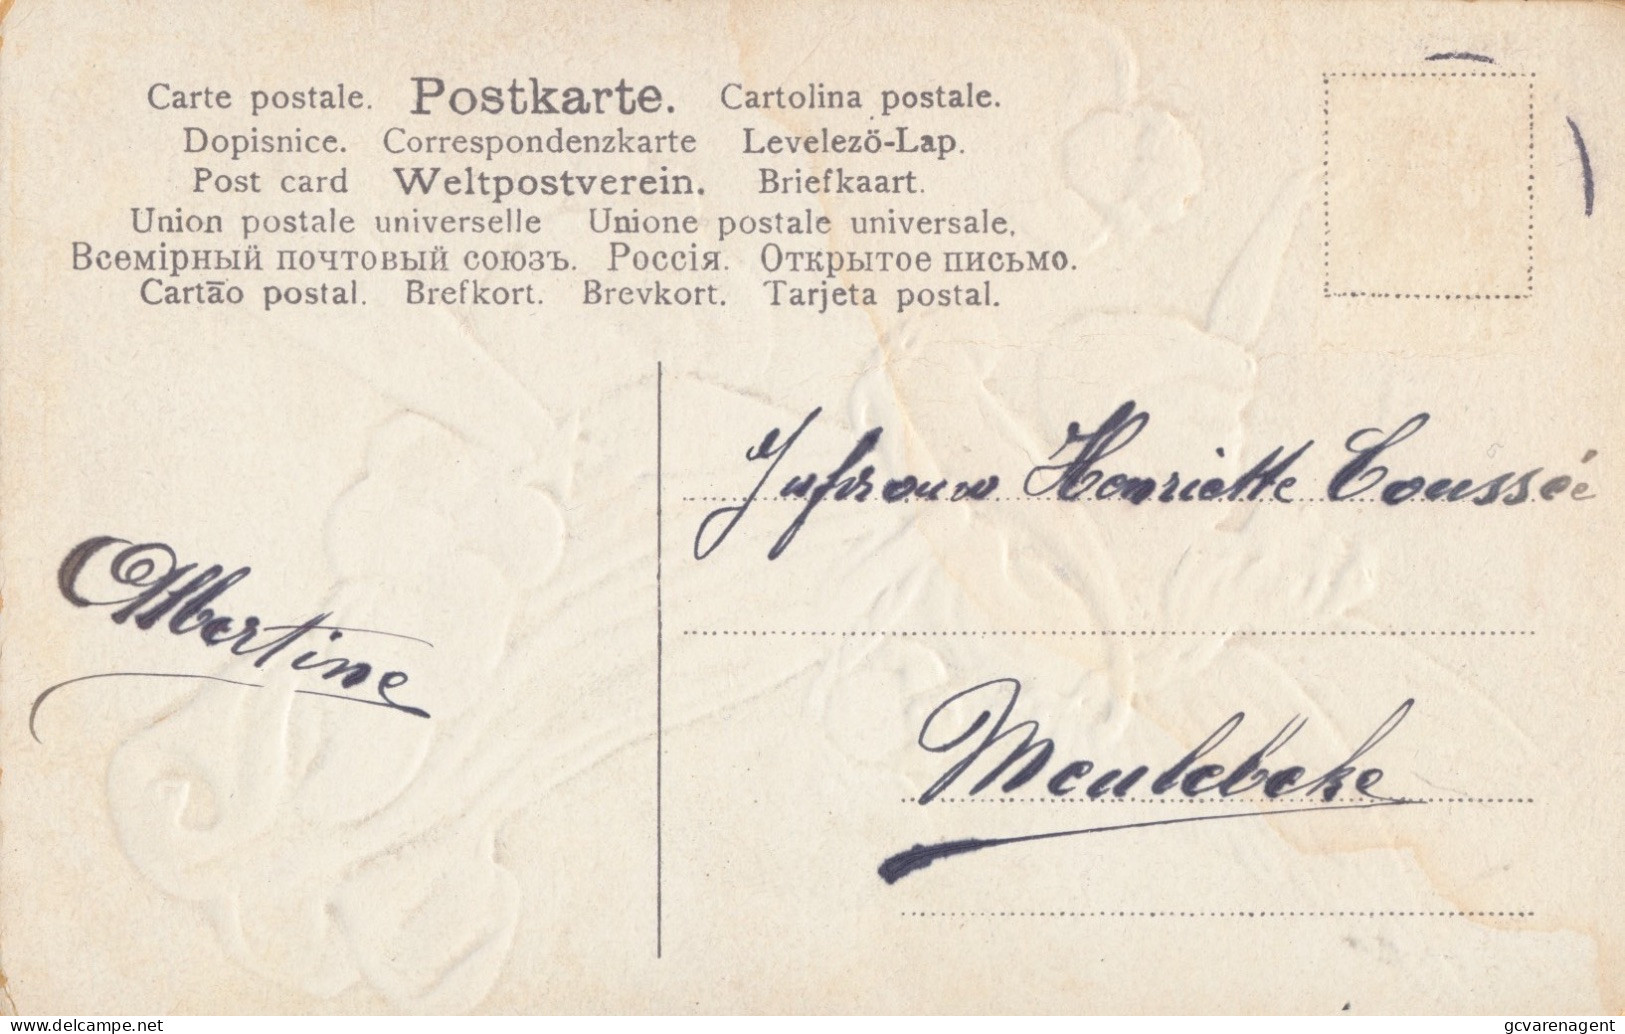 Carte postale. Postkarte. Cartolina postale.
Dopisnice. Correspondenzkarte Levelező-Lap.
Post card Weltpostverein. Briefkaart.
Union postale universelle Unione postale universale.
Всемірный почтовый союзъ. Россія. Открытое письмо.
Cartāo postal. Brefkort. Brevkort. Tarjeta postal.
Jufrouw Henriette Coussée
Albertine
Meulebeke
www.delcampe.net
gcvarenagent